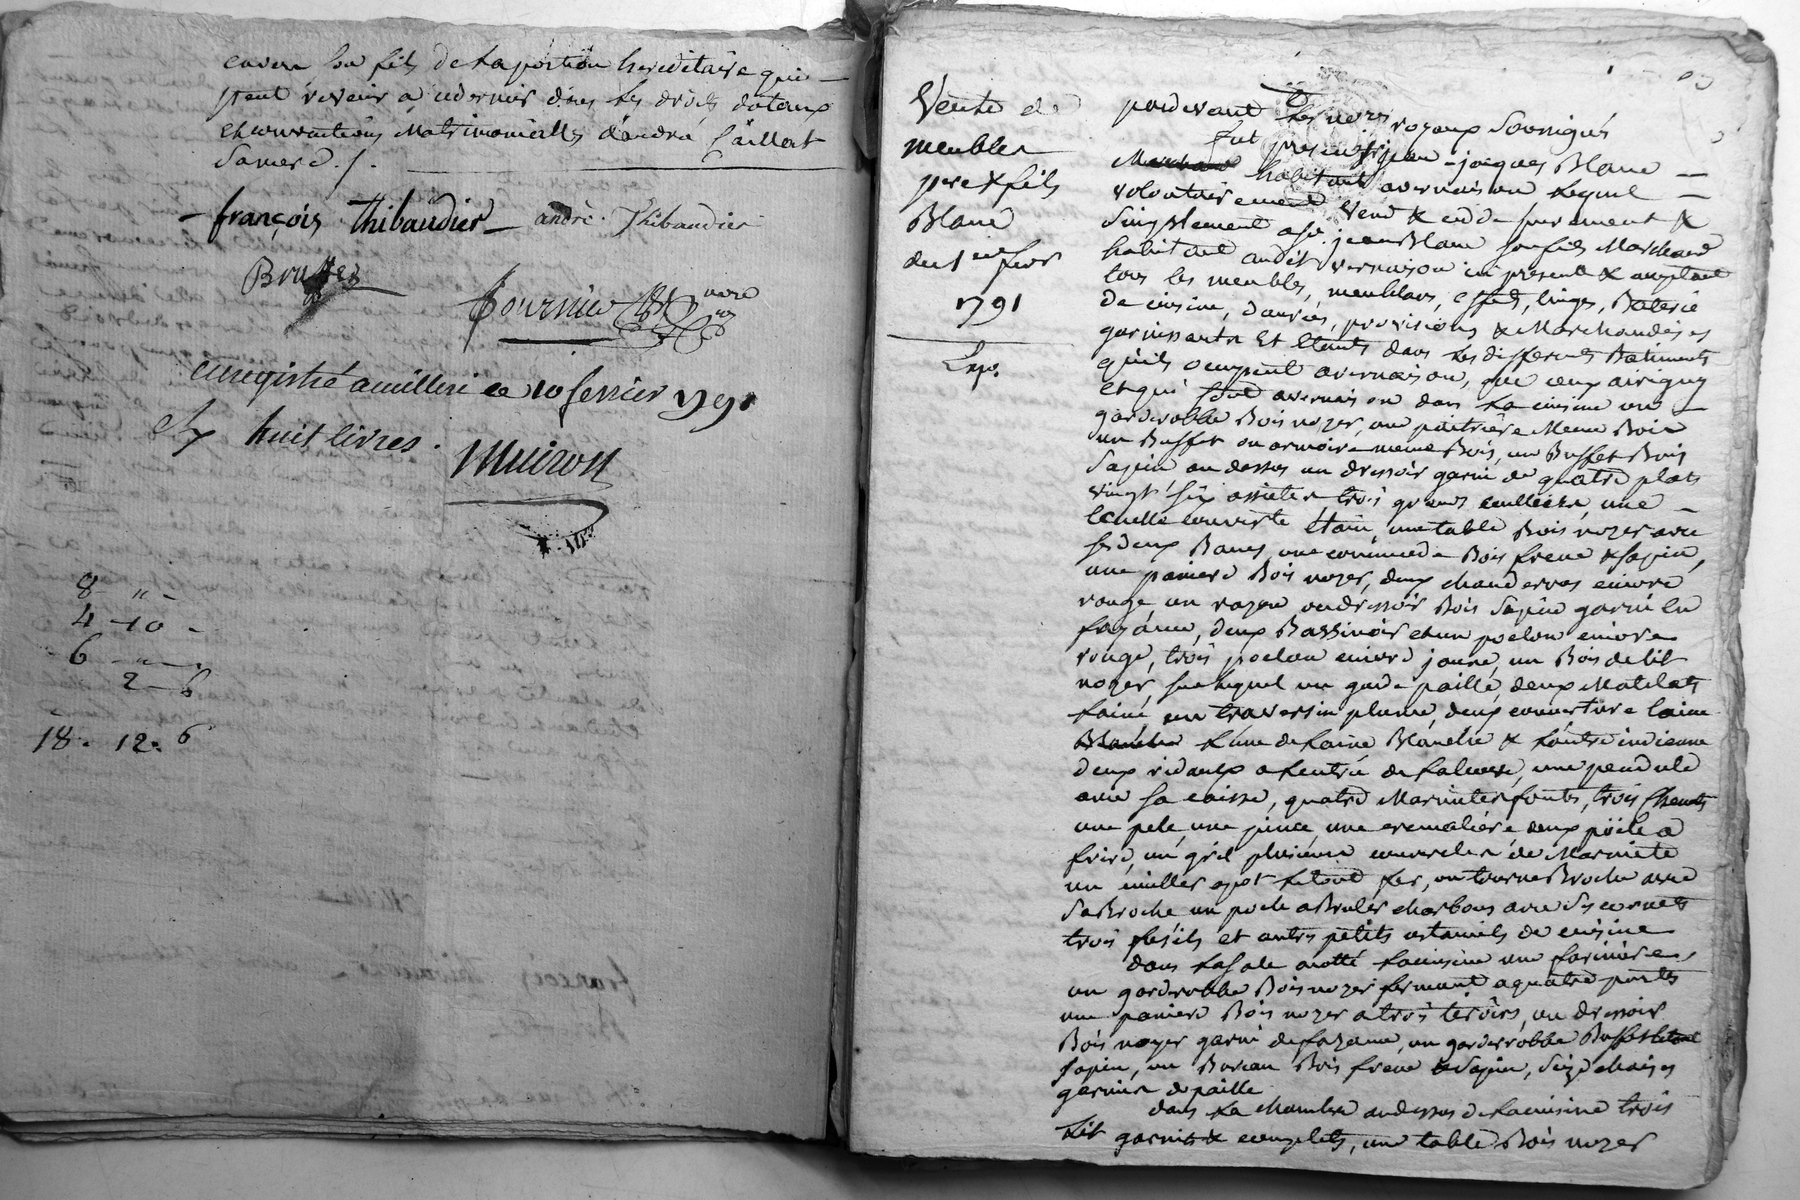 envers son fils de la portion hereditaire qui
peut revenir a ce dernier dans les droits dotaux
et conventions Matrimonialles d'andrée Caillat
sa mere ./.
françois Thibaudier andré Thibaudier
Fournier nore
enregistré a milleri le 10 fevrier 1791
huit livres.
Muiron
8 - " -
4 - 10 -
6 - " -
2 - 6
18. 12. 6
Vente de
meubles
pere & fils
Blanc
du 1er fevr
1791
Exp.
pardevant les nores royaux soussignés
fut present jean-jacques Blanc
habitant a vernaison lequel
volontairement vend & cede purement &
simplement a sr. jean Blanc son fils Marchand
habitant audit vernaison ici present & acceptant
tous les meubles, meublans, effets, linges, Baterie
de cuisine, danrées, provisions & Marchandises
garnissants et étants dans les differents Batiments
qu'ils occupent a vernaison,
et qui sont a vernaison dans la cuisine un
garderobbe Bois noyer, une paitrière Meme Bois
un Buffet ou armoire meme Bois, un Buffet Bois
sapin au dessus un dressoir garni de quatre plats
vingt six assiettes trois grands cuilliers, une
écuelle couverte étain, une table Bois noyer avec
ses deux Bancs, une commode Bois frene & sapin,
une paniere Bois noyer, deux chauderons cuivre
rouge, un rayon ou dressoir Bois sapin garni en
fayance, deux Bassinoir et un poelon cuivre
rouge, trois poelon cuivre jaune, un Bois de lit
noyer, sur lequel un garde paille, deux Matelats
laine un traversin plume, deux couverture laine
l'une de laine Blanche & l'autre indienne
deux rideaux a l'entrée de l'alcove, une pendule
avec sa caisse, quatre Marmites fontes, trois chenets
une pele, une pince, une cremalière, deux poële a
frire, un gril plusieurs couvercles de Marmite
un cuiller a pot le tout fer, un tourne Broche avec
sa Broche un poele a Bruler charbons avec ses cornets
trois fusils et autres petits ustancils de cuisine
dans la sale a coté la cuisine une farinière,
un garderobbe Bois noyer fermant a quatre portes
une paniere Bois noyer a trois tiroirs, un dressoir
Bois noyer garni de fayance, un garderobbe Buffet
sapin, un Bureau Bois frene & sapin, seize chaises
garnies de paille
dans la chambre au dessus de la cuisine trois
lit garnis & complets, une table Bois noyer